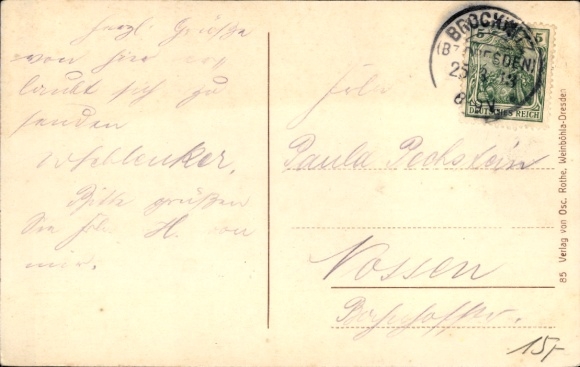 herzl. Grüße
von hier er-
laubt sich zu
senden
Schlenker.
Bitte grüßen
Sie frl. H. von
mir.
BROCKWITZ
(BZ. DRESDEN)
25
8-9N
5 5
DEUTSCHES REICH
Frln
Paula Pechstein
Nossen
Bahnhofstr.
85 Verlag von Osc. Rothe, Weinböhla-Dresden
15,-